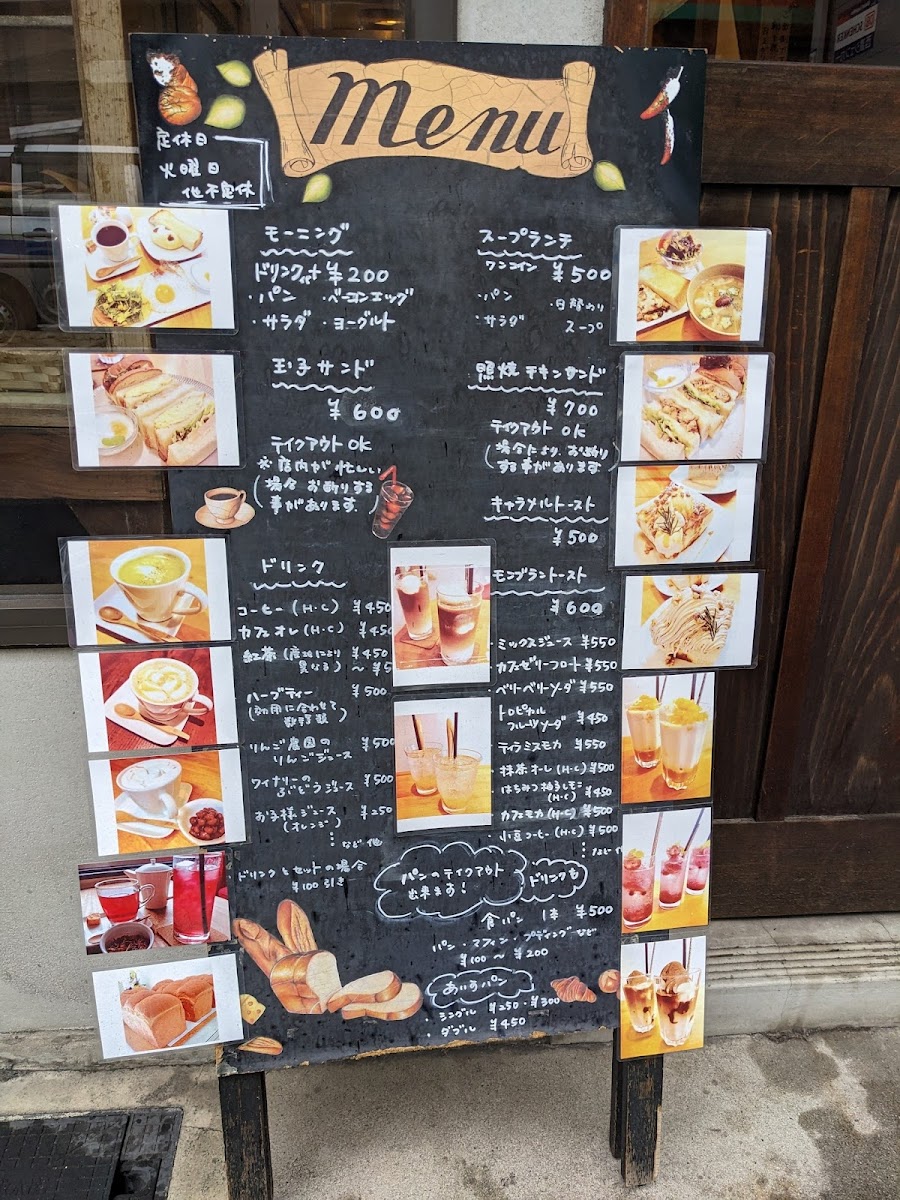 Menu
定休日
火曜日
他不定休
モーニング
ドリンク付+ ¥200
・パン ・ベーコンエッグ
・サラダ ・ヨーグルト
玉子サンド
¥600
テイクアウトOK
※店内が忙しい
場合 お断りする
事があります.
ドリンク
コーヒー(H・C) ¥450
カフェオレ(H・C) ¥450
紅茶(産地により
異なる) 〜¥5
ハーブティー ¥500
(効用に合わせて
数種類)
りんご農園の ¥500
りんごジュース
ワイナリーの ¥500
ぶどうジュース
お子様ジュース ¥250
(オレンジ)
など他
ドリンクとセットの場合
¥100引き
スープランチ
ワンコイン ¥500
・パン ・日替わり
・サラダ スープ
照焼チキンサンド
¥700
テイクアウト OK
(場合により、お断り
する事があります)
キャラメルトースト
¥500
モンブラントースト
¥600
・ミックスジュース ¥550
・カフェゼリーフロート ¥550
・ベリーベリーソーダ ¥550
・トロピカル
フルーツソーダ ¥450
・ティラミスモカ ¥550
・抹茶オーレ(H・C) ¥500
・はちみつ柚子レモン
(H・C) ¥450
・カフェモカ(H・C) ¥500
・小豆コーヒー(H・C) ¥500
など他
パンのテイクアウト
出来ます!
ドリンクも
食パン 1本 ¥500
パン・マフィン・プディングなど
¥100 〜 ¥200
あいすパン
・シングル ¥250・¥300
・ダブル ¥450